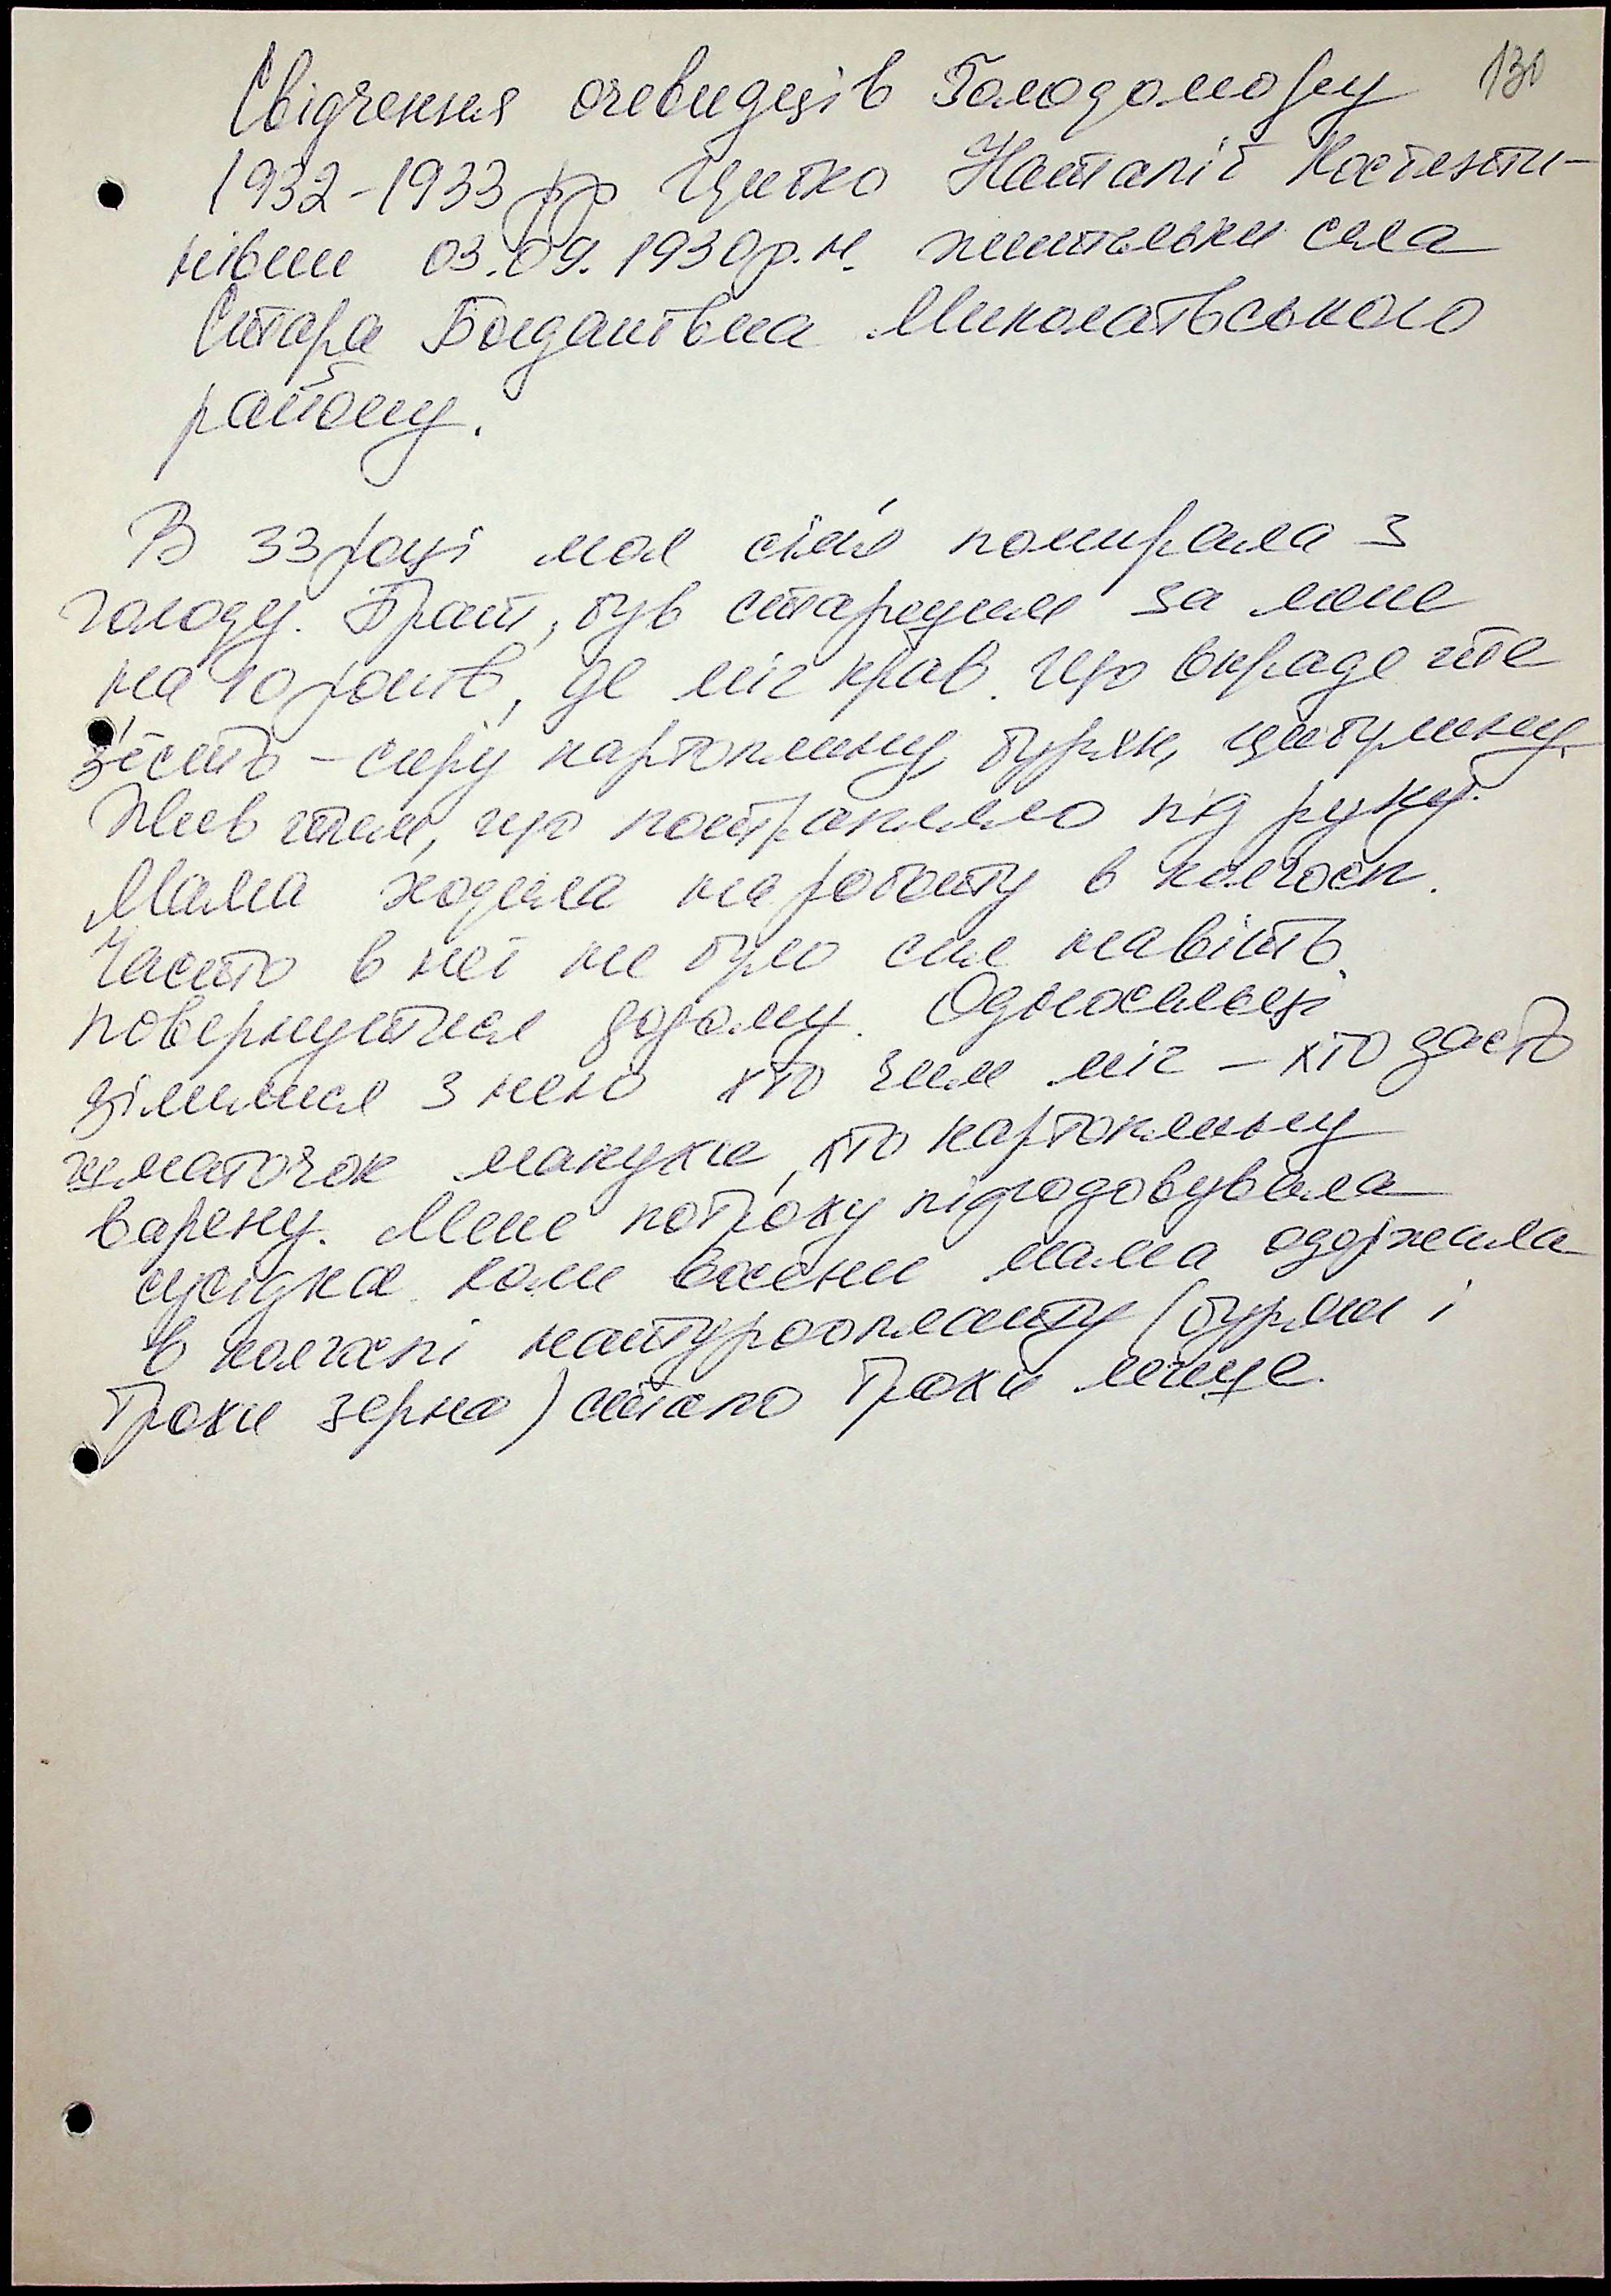 130
Свідчення очевидців Голодомору
1932-1933 рр Цитко Наталії Костянти-
нівни 03.09.1930 р.н. жительки села
Стара Богданівка Миколаївського
району.
В 33 році моя сім'я помирала з
голоду. Брат, був старшим за мене
на 10 років, де міг крав. Що вкраде те
з'їсть - сиру картоплину, буряк, цибулину.
Жив тим, що потрапляло під руку.
Мама ходила на роботу в колгосп.
Часто в неї не було сил навіть
повернутися додому. Односельці
ділилися з нею хто чим міг - хто дасть
шматочок макухи, хто картоплину
варену. Мене потроху підгодовувала
сусідка. Коли восени мама одержала
в колгоспі натурооплату (буряки і
трохи зерна) стало трохи легше.